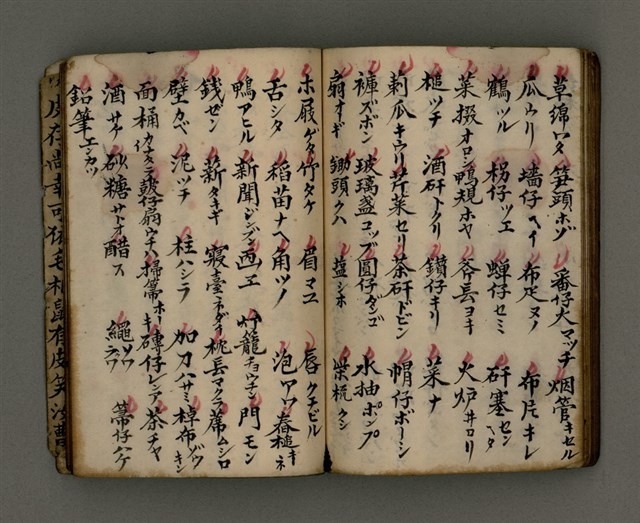 草綿ワタ 箕頭ホゾ 番仔火マッチ 烟管キセル
瓜ウリ 墻仔ヘイ 布疋ヌノ 布片キレ
鶴ツル 柺仔ツエ 蟬仔セミ 矸塞センヘタ
菜撥オロシ 鴨規ホヤ 斧長ヨキ 火炉井ロリ
槌ツチ 酒矸トクリ 鑽仔キリ 菜ナ
莿瓜キウリ 芹菜セリ 茶矸ドビン 帽仔ボーシ
褲ズボン 玻璃盞コップ 圓仔ダンゴ 水抽ポンプ
扇オギ 鋤頭クハ 塩シホ 柴梳クシ
木屐ゲタ 竹タケ 眉マユ 唇クチビル
舌シタ 稻苗ナヘ 角ツノ 泡アワ 舂槌キネ
鴨アヒル 新聞シンブン 画エ 竹籠チョウチン 門モン
錢ゼン 薪タキギ 寢臺ネダイ 枕長マクラ 蓆ムシロ
壁カベ 泥ツチ 柱ハシラ 加刀ハサミ 棹布ゾウキン
面桶カナタラ 諛仔扇ウチハ 掃箒ホーキ 磚仔レンアヂ 茶チャ
酒サケ 砂糖サトオ 醋ス 繩ナワ 箒仔ハケ
鉛筆エンピツ
皮存尚幸可猫毛相鼠有皮笑汝曹